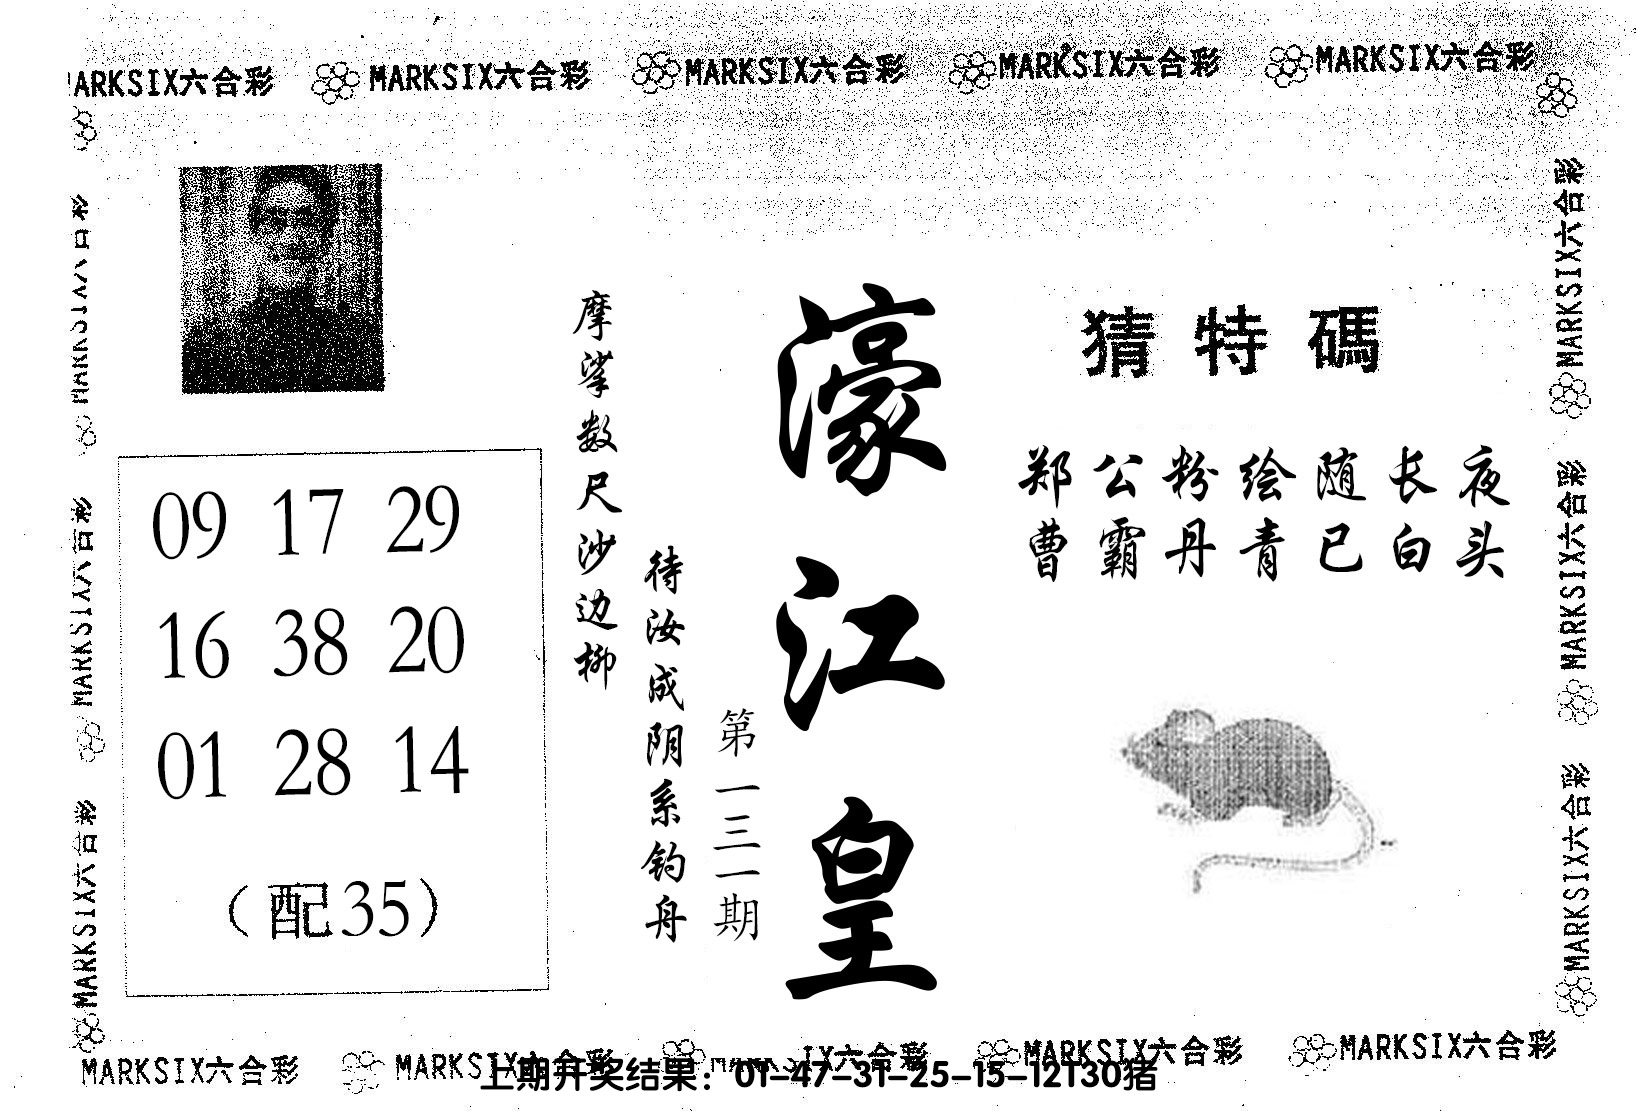 MARKSIX六合彩 MARKSIX六合彩 MARKSIX六合彩 MARKSIX六合彩 MARKSIX六合彩
猜特碼
郑公粉绘随长夜
曹霸丹青已白头
濠江皇
第一三一期
摩挲数尺沙边柳
待汝成阴系钓舟
09 17 29
16 38 20
01 28 14
（配35）
MARKSIX六合彩
MARKSIX六合彩
MARKSIX六合彩
MARKSIX六合彩
MARKSIX六合彩
MARKSIX六合彩
MARKSIX六合彩 MARKSIX六合彩 MARKSIX六合彩 MARKSIX六合彩
上期开奖结果：01-47-31-25-15-12T30猪